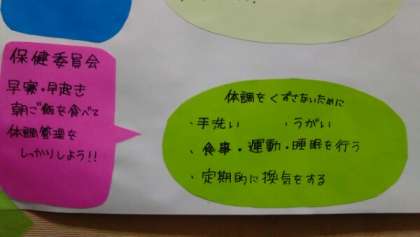 保健委員会
早寝・早起き
朝ご飯を食べて
体調管理を
しっかりしよう!!
体調をくずさないために
・手洗い ・うがい
・食事・運動・睡眠を行う
・定期的に換気をする